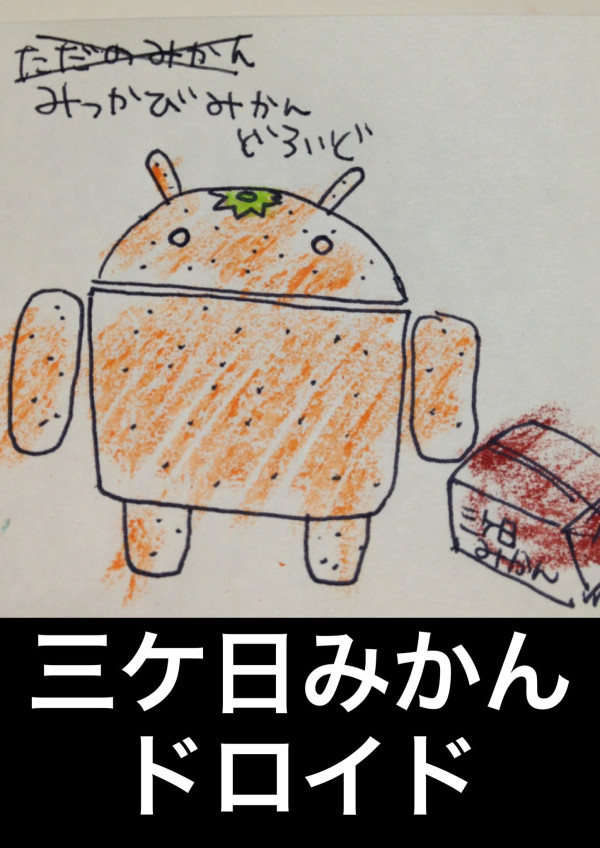 ただのみかん
みっかびみかん
どろいど
三ケ日
みかん
三ケ日みかん
ドロイド